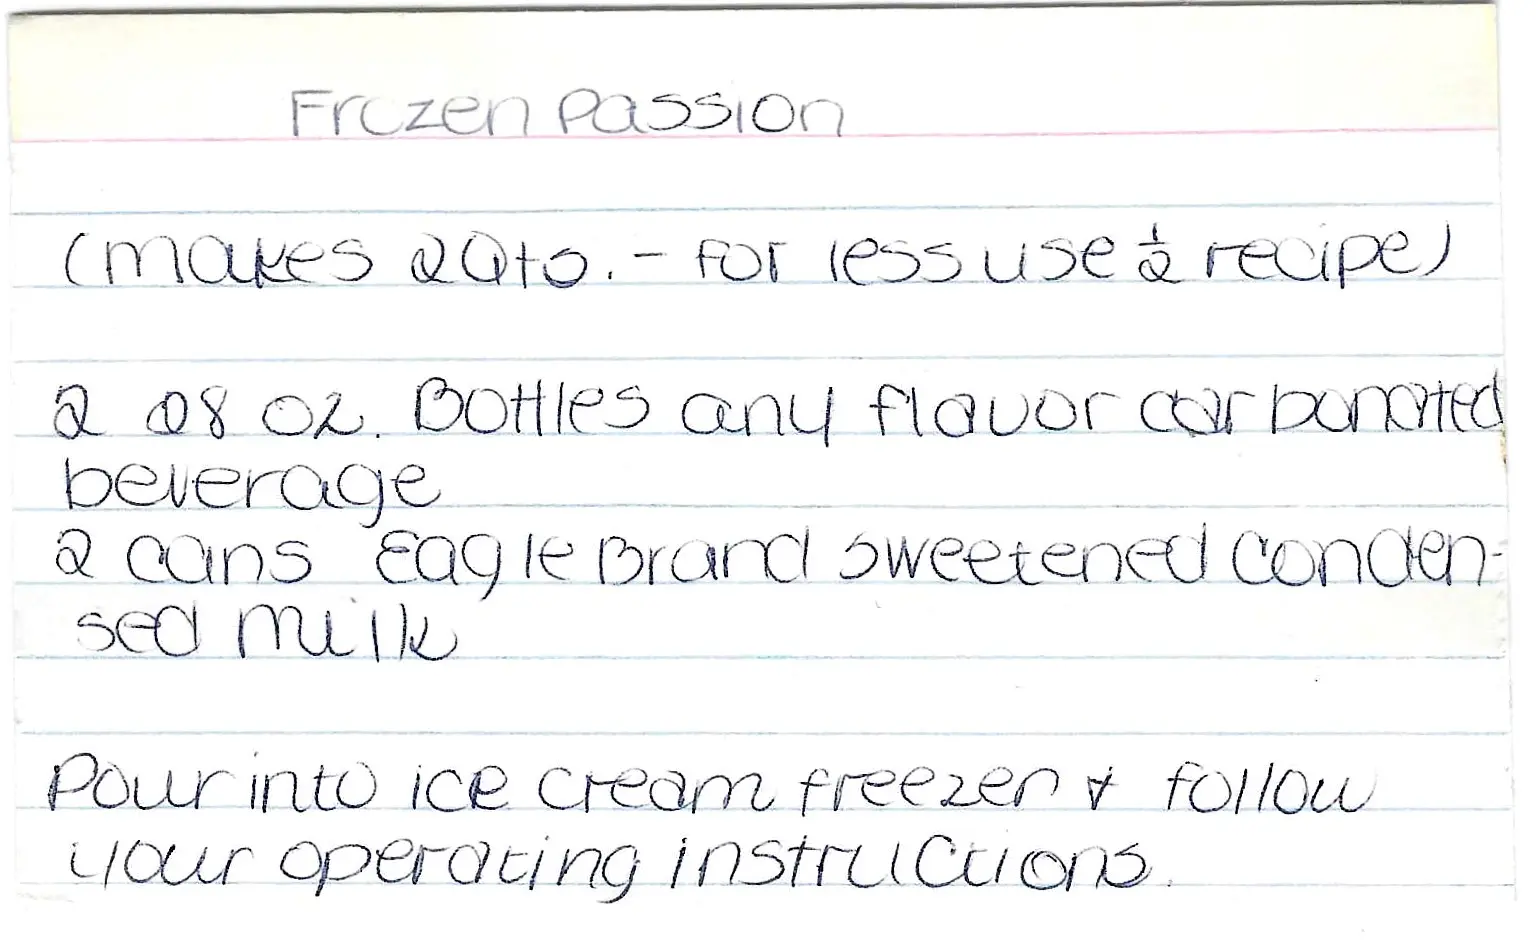 Frozen Passion
(makes 2 Qts. - for less use ½ recipe)
2 28 oz. Bottles any flavor carbonated
beverage
2 cans Eagle Brand sweetened conden-
sed milk
Pour into ice cream freezer & follow
your operating instructions.